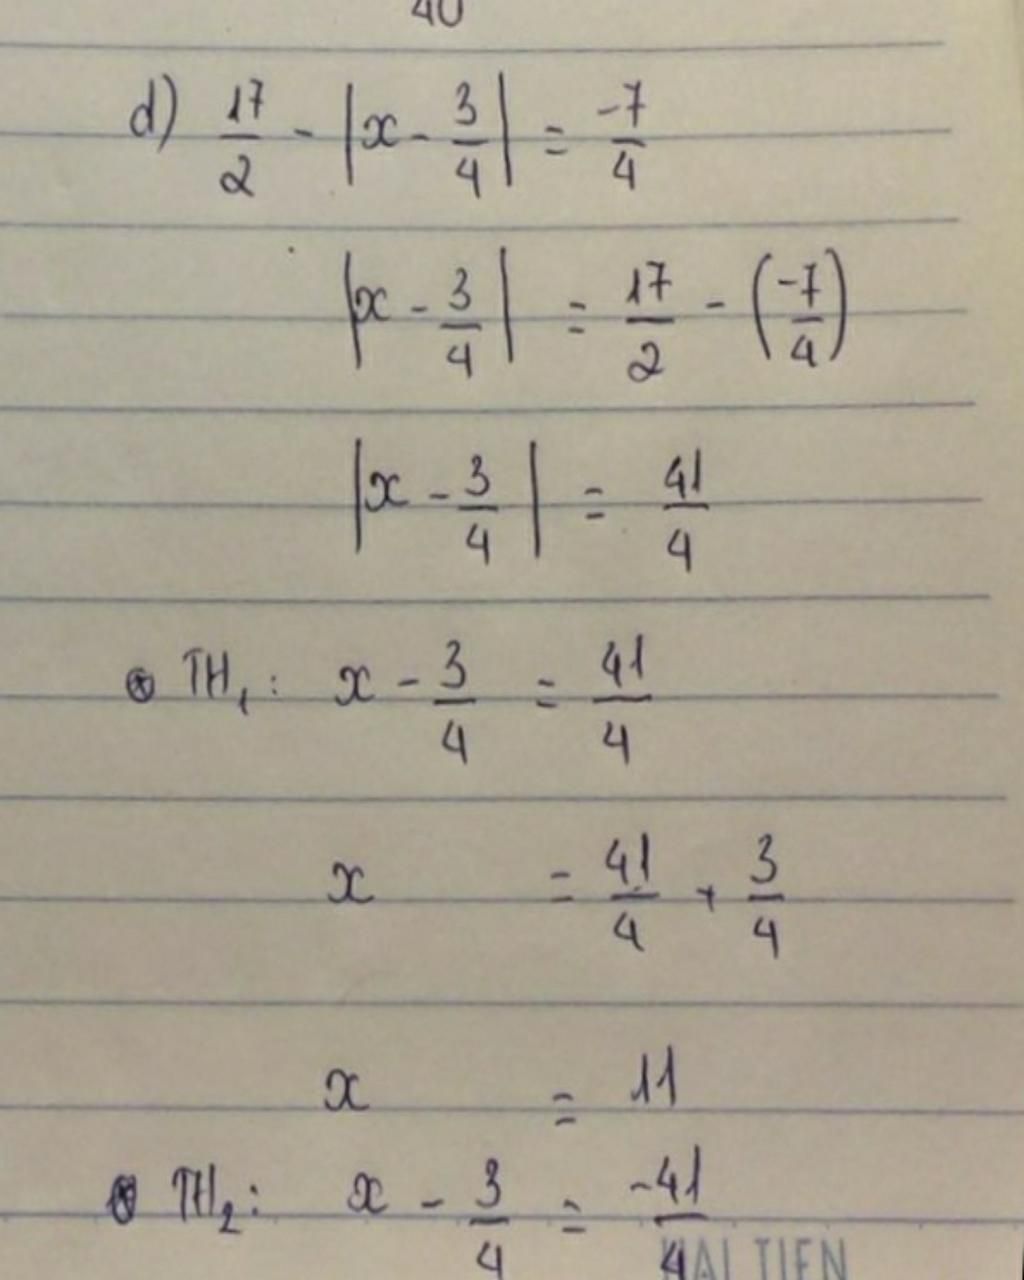 40
d) 17/2 - |x - 3/4| = -7/4
|x - 3/4| = 17/2 - (-7/4)
|x - 3/4| = 41/4
⊛ TH₁: x - 3/4 = 41/4
x = 41/4 + 3/4
x = 11
⊛ TH₂: x - 3/4 = -41/4
HAI TIEN